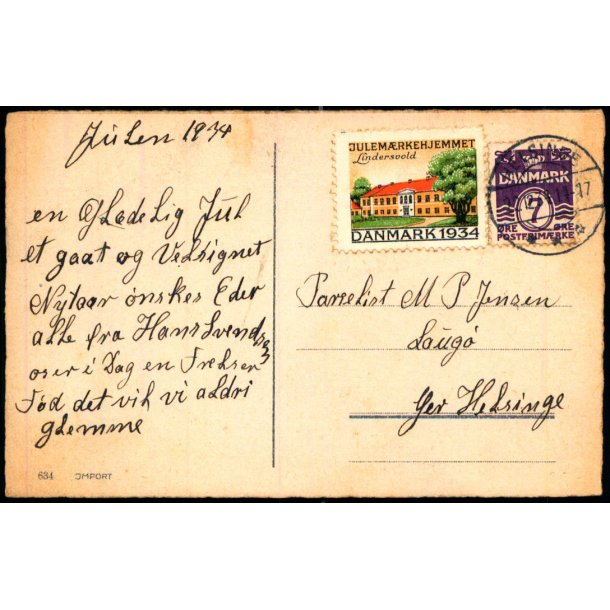 Julen 1934
en Glædelig Jul
et gaat og Velsignet
Nytaar ønskes Eder
alle fra Hans Svendsen
os er i Dag en Frelser
Fød det vil vi aldri
glemme
634 IMPORT
JULEMÆRKEHJEMMET
Lindersvold
DANMARK 1934
DANMARK
7
ØRE ØRE
POSTFRIMÆRKE
Parselist M P Jensen
Laugø
per Helsinge